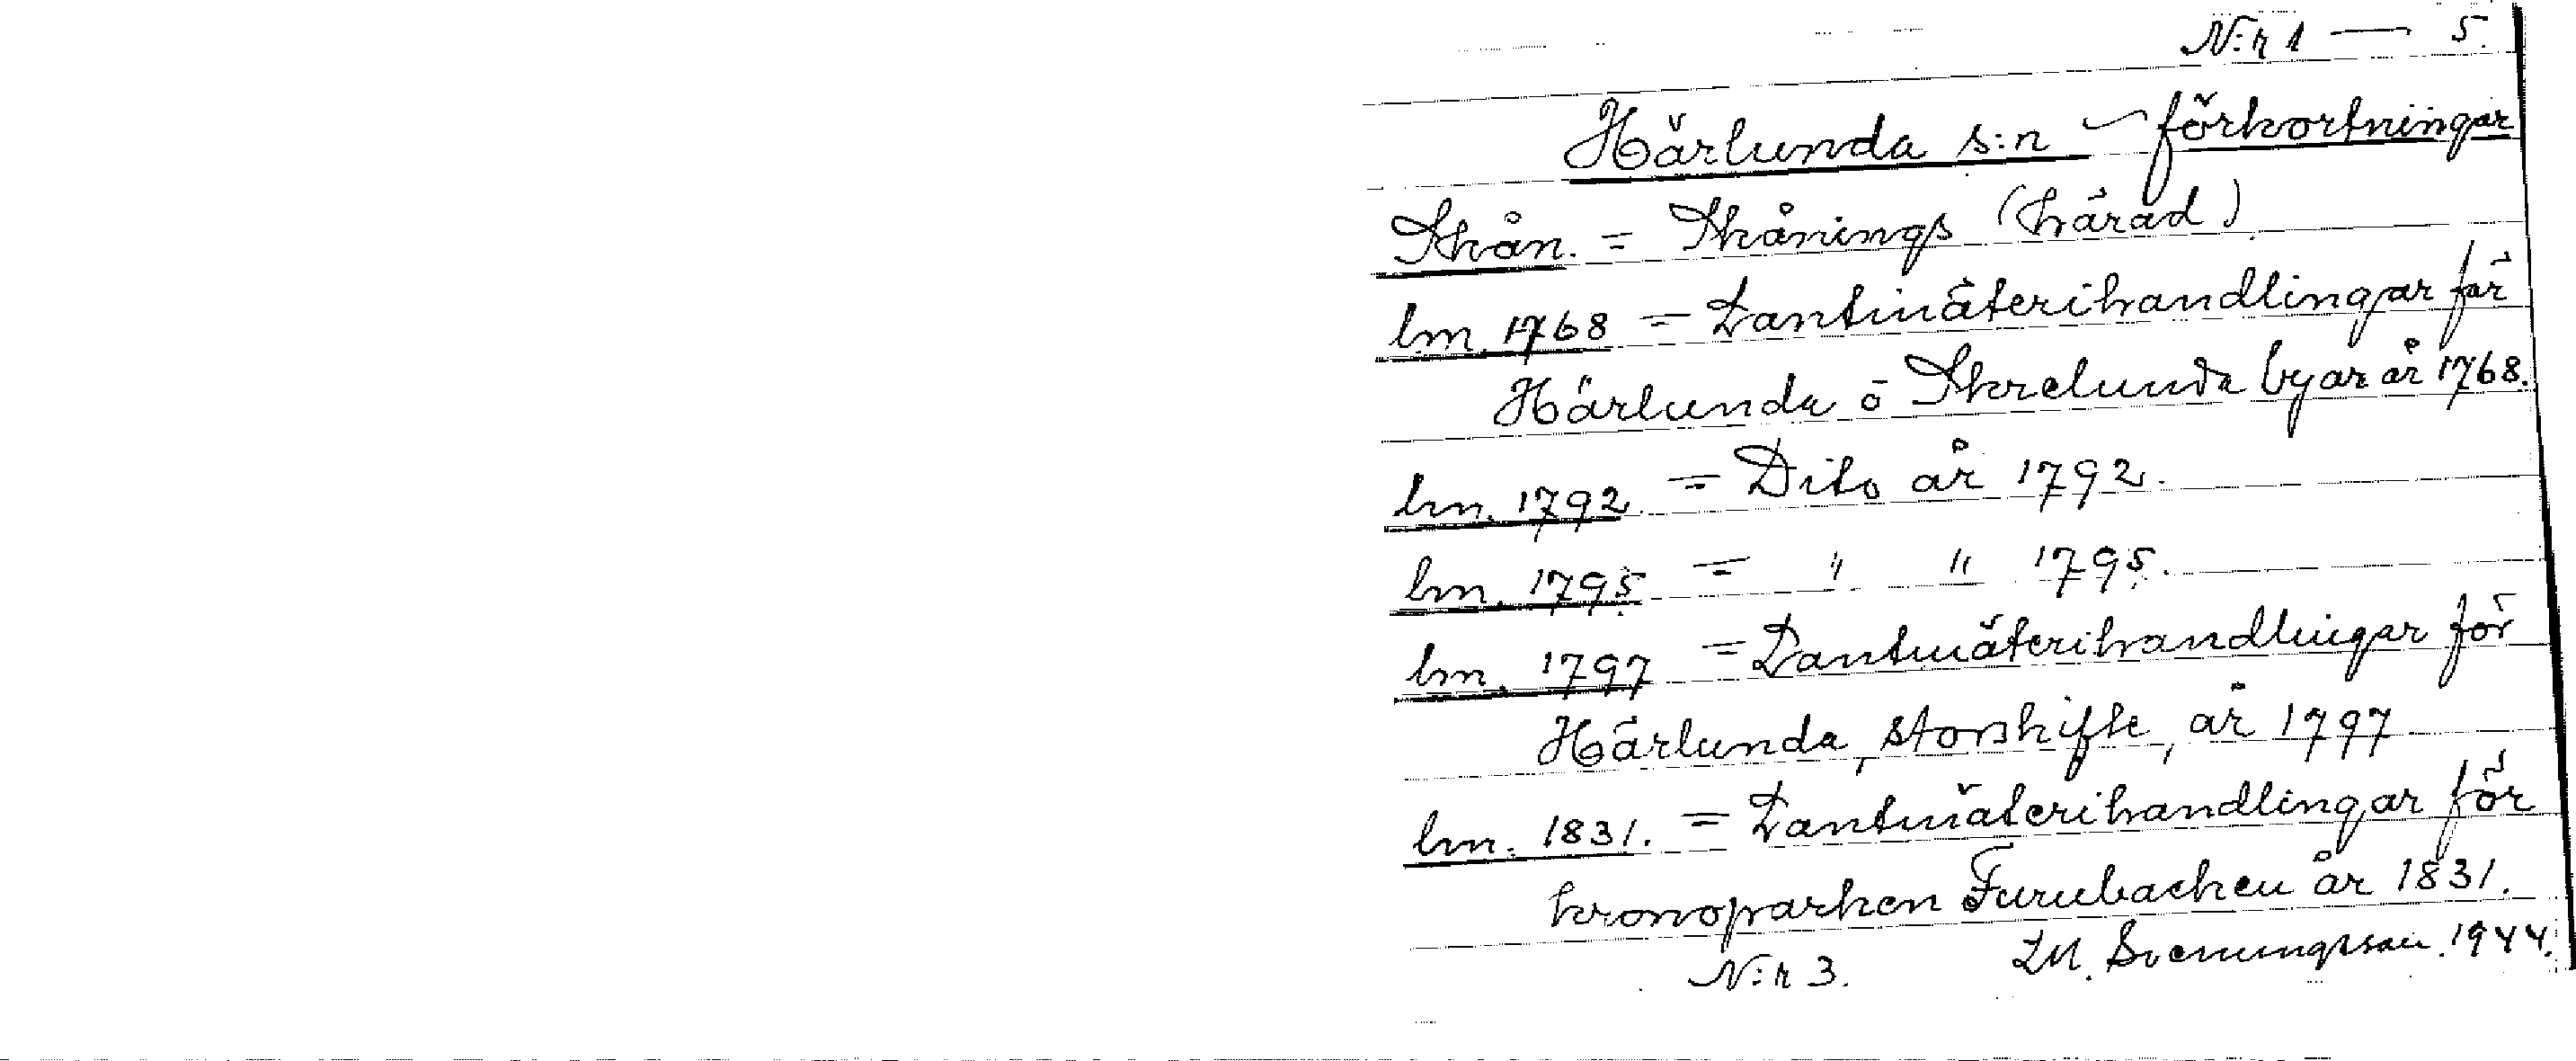 N:r 1 — 5.
Härlunda s:n – förkortningar
Skån. = Skånings (härad).
lm. 1768 = Lantmäterihandlingar för
Härlunda o Skrelunda byar år 1768.
lm. 1792 = Dito år 1792.
lm. 1795 = " " 1795.
lm. 1797 = Lantmäterihandlingar för
Härlunda, storskifte, år 1797
lm. 1831. = Lantmäterihandlingar för
kronoparken Furubacken år 1831.
N:r 3. LM. Svenungsson. 1944.